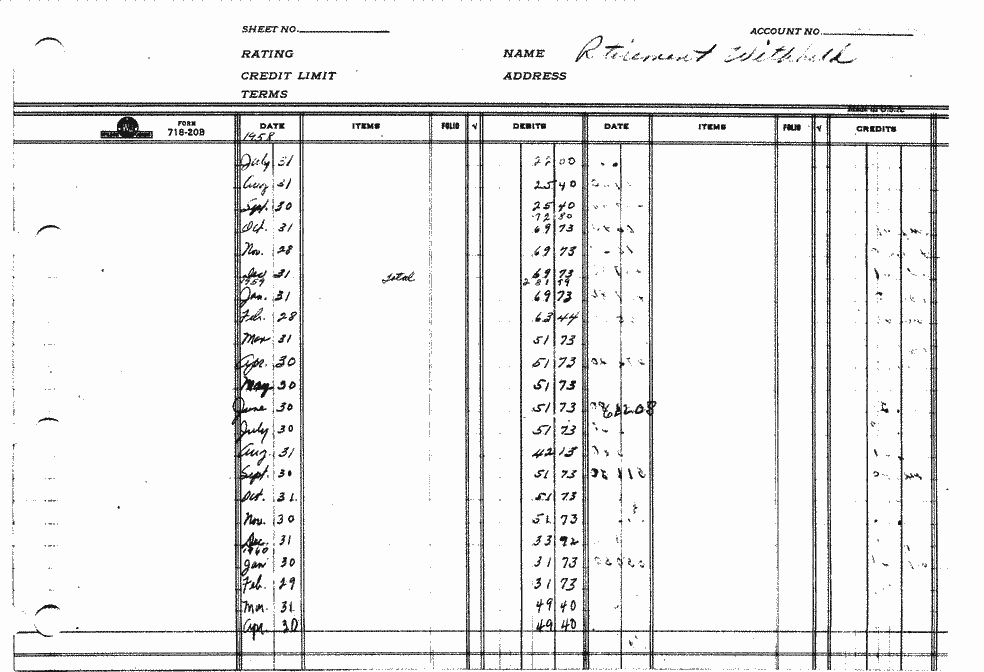 SHEET NO. ACCOUNT NO.
RATING NAME Retirement Withheld
CREDIT LIMIT ADDRESS
TERMS
MADE IN U.S.A.
FORM 718-20B DATE ITEMS FOLIO √ DEBITS DATE ITEMS FOLIO √ CREDITS
1958
July 31 22 00
Aug 31 25 40
Sept. 30 25 40
72 80
Oct. 31 69 73
Nov. 28 69 73
Dec 31 total 69 73
1959 281 59
Jan. 31 69 73
Feb. 28 63 44
Mar 31 51 73
Apr. 30 51 73
May 30 51 73
June 30 51 73
July 30 51 73
Aug. 31 42 13
Sept. 30 51 73
Oct. 31. 51 73
Nov. 30 51 73
Dec. 31 33 92
1960
Jan 30 31 73
Feb. 29 31 73
Mar. 31. 49 40
Apr. 30 49 40